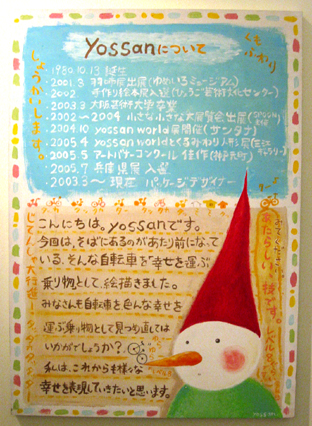 yossanについて
しょうかいします。
・1980.10.13 誕生
・2002 手作り絵本展入選(ひょうご芸術文化センター)
・2003.3 大阪芸術大学卒業
・2002〜2004 小さな小さな大展覧会出展
・2004.10 yossan world展開催(サンタナ)
・2005.4 yossan worldとくるみわり人形展
・2005.5 アートパワーコンクール 佳作
・2005.7 兵庫県展 入選
・2003.3〜現在 パッケージデザイナー
こんにちは。yossanです。
今回は、そばにあるのがあたり前になって
いる、そんな自転車を"幸せを運ぶ
乗り物"として、絵描きました。
みなさんも自転車を色んな幸せを
運ぶ乗り物として見つめ直しては
いかがでしょうか?
私は、これからも様々な
幸せを表現していきたいと思います。